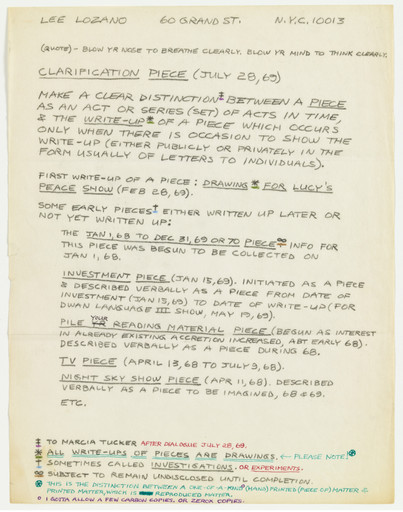 LEE LOZANO 60 GRAND ST. N.Y.C. 10013
(QUOTE) - BLOW YR NOSE TO BREATHE CLEARLY. BLOW YR MIND TO THINK CLEARLY.
CLARIFICATION PIECE (JULY 28, 69)
MAKE A CLEAR DISTINCTION‡ BETWEEN A PIECE
AS AN ACT OR SERIES (SET) OF ACTS IN TIME,
& THE WRITE-UP OF A PIECE WHICH OCCURS
ONLY WHEN THERE IS OCCASION TO SHOW THE
WRITE-UP (EITHER PUBLICLY OR PRIVATELY IN THE
FORM USUALLY OF LETTERS TO INDIVIDUALS).
FIRST WRITE-UP OF A PIECE: DRAWING FOR LUCY'S
PEACE SHOW (FEB 28, 69).
SOME EARLY PIECES‡ EITHER WRITTEN UP LATER OR
NOT YET WRITTEN UP:
THE JAN 1, 68 TO DEC 31, 69 OR 70 PIECE INFO FOR
THIS PIECE WAS BEGUN TO BE COLLECTED ON
JAN 1, 68.
INVESTMENT PIECE (JAN 15, 69). INITIATED AS A PIECE
& DESCRIBED VERBALLY AS A PIECE FROM DATE OF
INVESTMENT (JAN 15, 69) TO DATE OF WRITE-UP (FOR
DWAN LANGUAGE III SHOW, MAY 19, 69).
PILE YOUR READING MATERIAL PIECE (BEGUN AS INTEREST
IN ALREADY EXISTING ACCRETION INCREASED, ABT EARLY 68).
DESCRIBED VERBALLY AS A PIECE DURING 68.
TV PIECE (APRIL 13, 68 TO JULY 3, 68).
NIGHT SKY SHOW PIECE (APR 11, 68). DESCRIBED
VERBALLY AS A PIECE TO BE IMAGINED, 68 & 69.
ETC.
‡ TO MARCIA TUCKER AFTER DIALOGUE JULY 28, 69.
ALL WRITE-UPS OF PIECES ARE DRAWINGS. ← PLEASE NOTE!
‡ SOMETIMES CALLED INVESTIGATIONS. OR EXPERIMENTS.
SUBJECT TO REMAIN UNDISCLOSED UNTIL COMPLETION.
THIS IS THE DISTINCTION BETWEEN A ONE-OF-A-KIND (HAND) PRINTED (PIECE OF) MATTER &
PRINTED MATTER, WHICH IS REPRODUCED MATTER.
I GOTTA ALLOW A FEW CARBON COPIES, OR ZEROX COPIES.